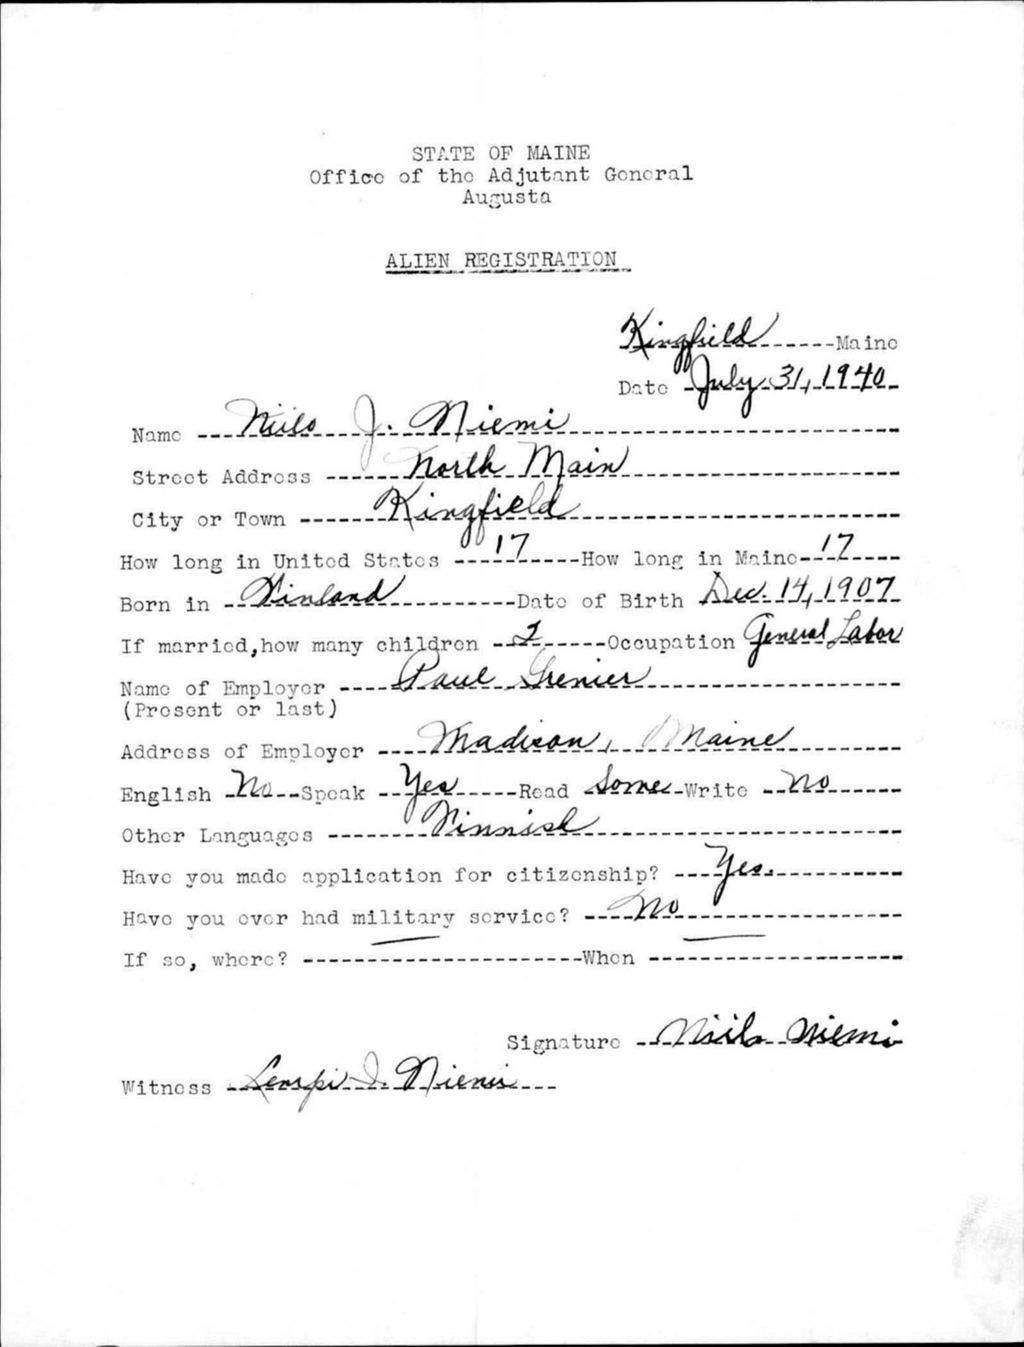 STATE OF MAINE
Office of the Adjutant General
Augusta
ALIEN REGISTRATION
Kingfield Maine
Date July 31, 1940
Name Niilo J. Niemi
Street Address North Main
City or Town Kingfield
How long in United States 17 How long in Maine 17
Born in Finland Date of Birth Dec. 14, 1907
If married, how many children 2 Occupation General Labor
Name of Employer Paul Grenier
(Present or last)
Address of Employer Madison, Maine
English No Speak Yes Read Some Write No
Other Languages Finnish
Have you made application for citizenship? Yes.
Have you ever had military service? No
If so, where? — When —
Signature Niilo Niemi
Witness J. Niemi